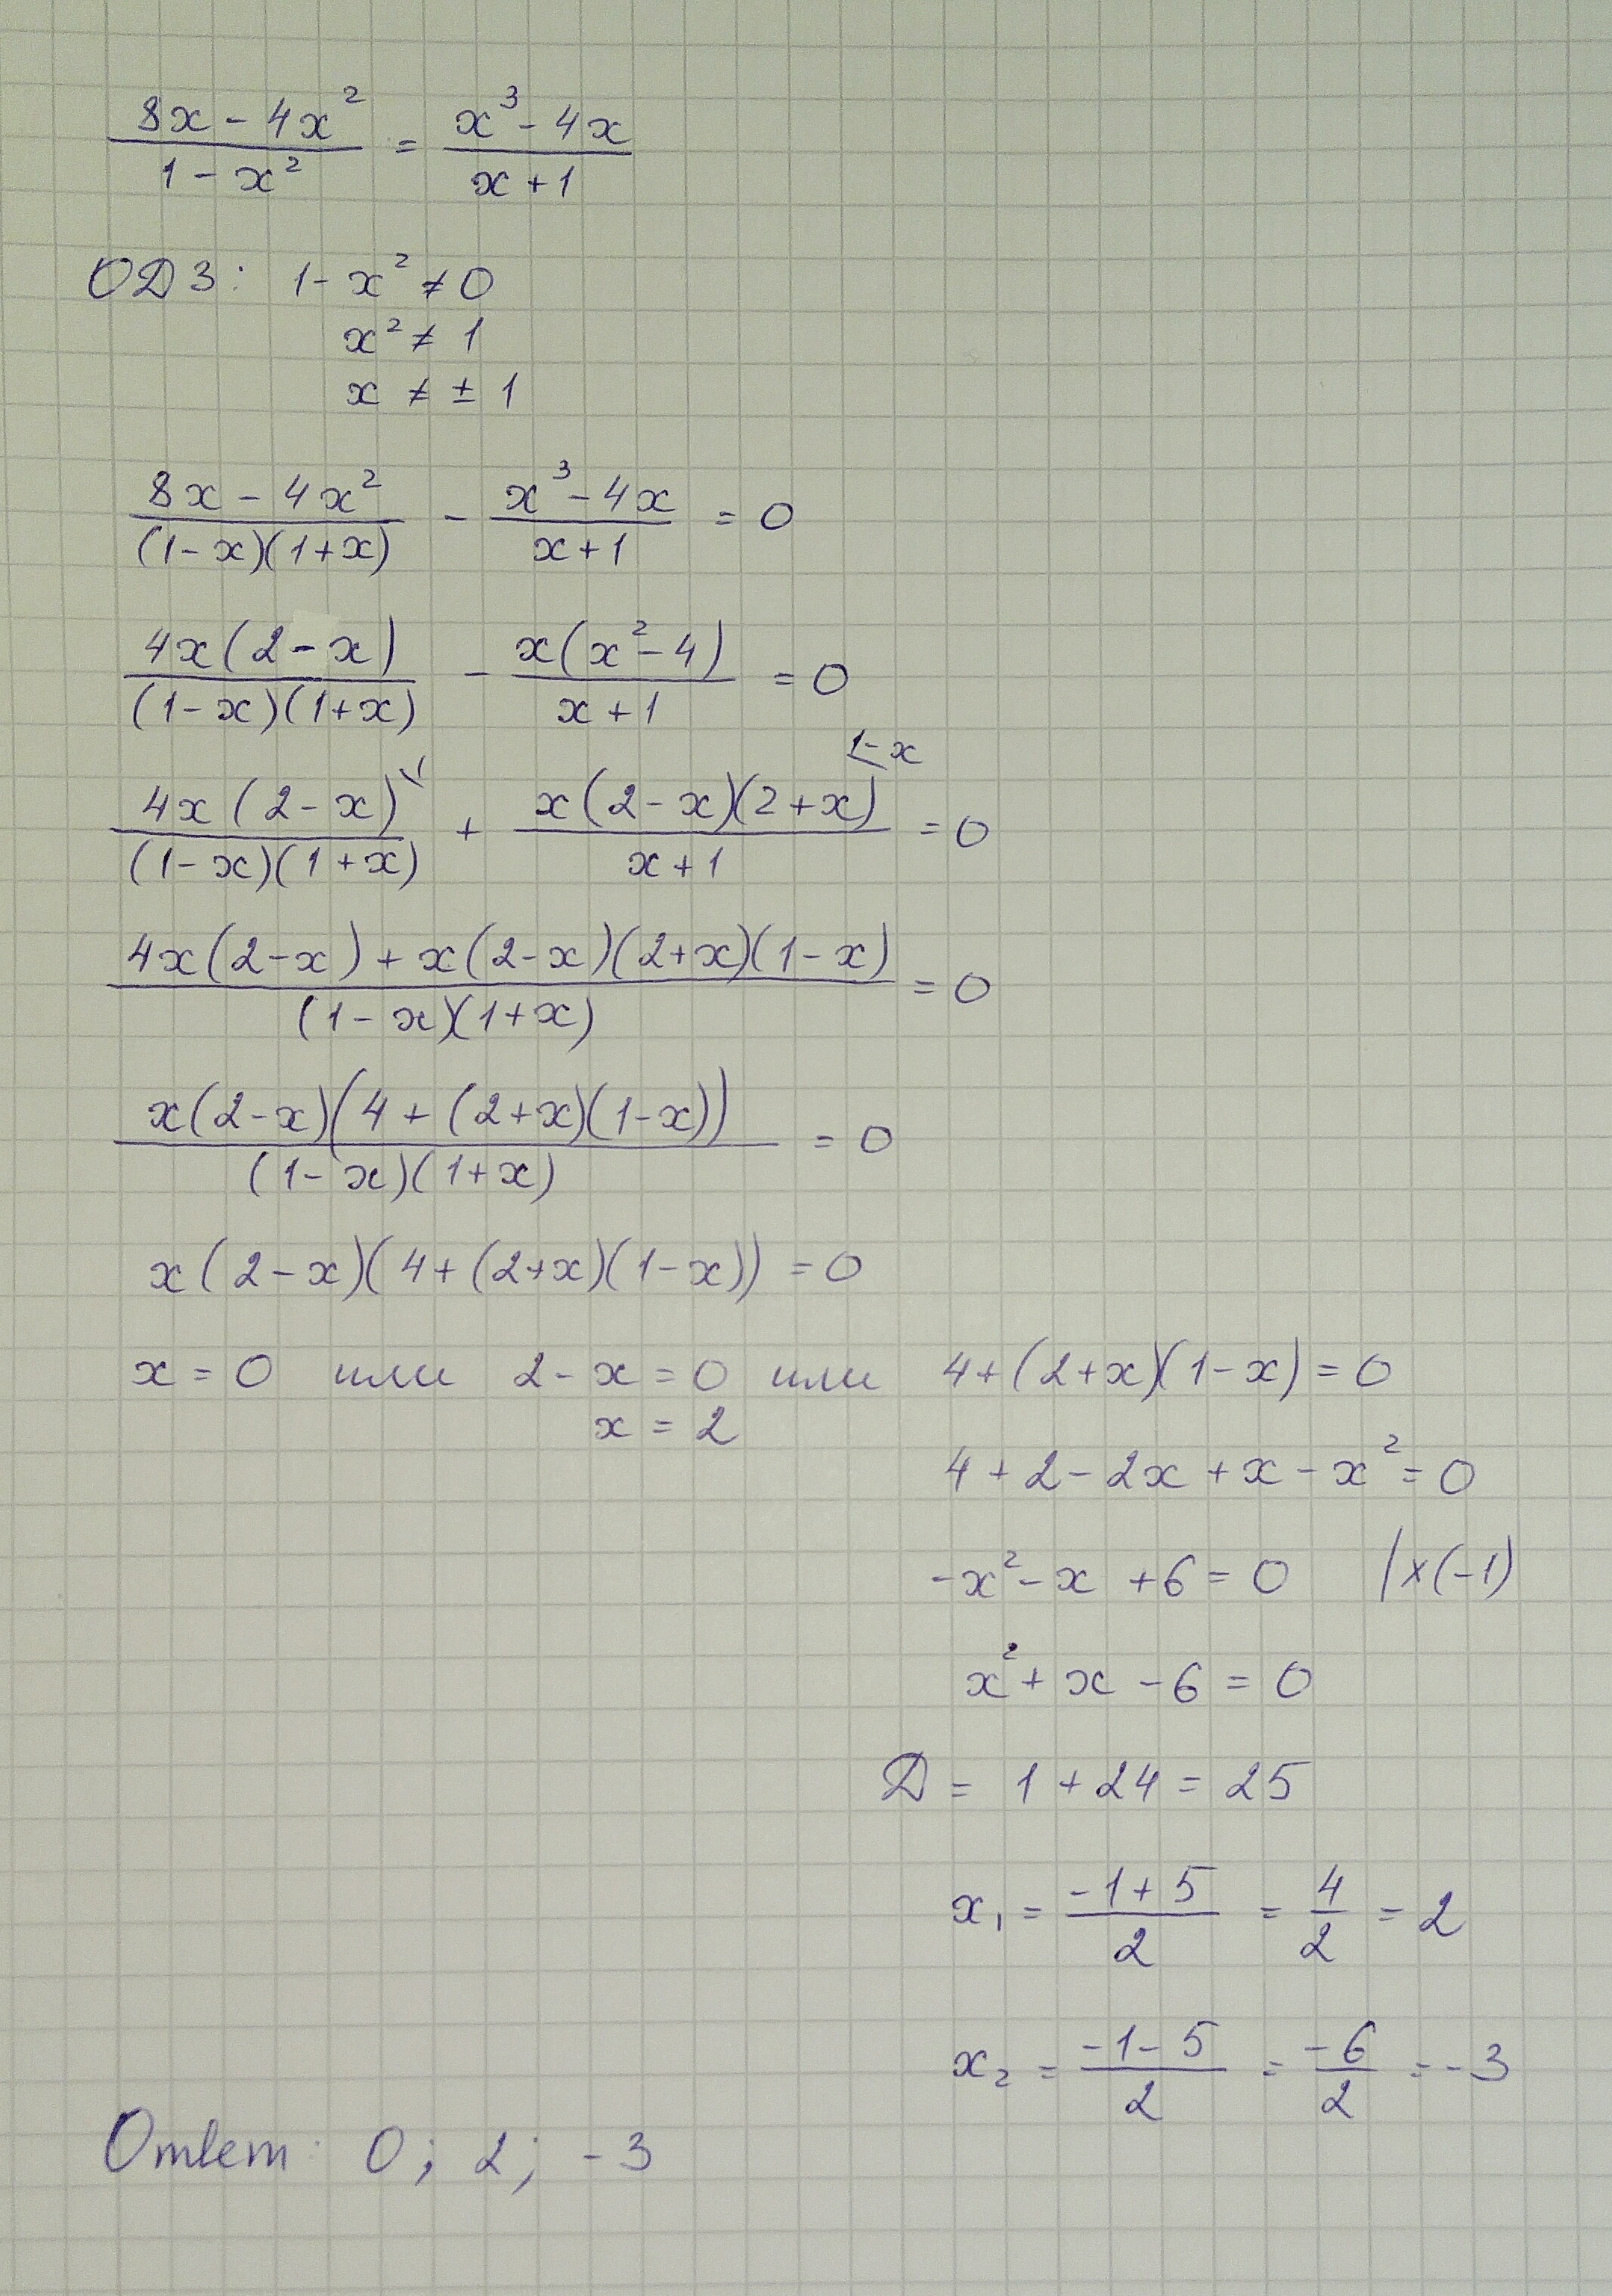 (8x - 4x²)/(1 - x²) = (x³ - 4x)/(x + 1)
ОДЗ: 1 - x² ≠ 0
x² ≠ 1
x ≠ ± 1
(8x - 4x²)/((1 - x)(1 + x)) - (x³ - 4x)/(x + 1) = 0
(4x(2 - x))/((1 - x)(1 + x)) - (x(x² - 4))/(x + 1) = 0
(4x(2 - x))/((1 - x)(1 + x)) + (x(2 - x)(2 + x))/(x + 1) = 0
1 - x
(4x(2 - x) + x(2 - x)(2 + x)(1 - x))/((1 - x)(1 + x)) = 0
(x(2 - x)(4 + (2 + x)(1 - x)))/((1 - x)(1 + x)) = 0
x(2 - x)(4 + (2 + x)(1 - x)) = 0
x = 0 или 2 - x = 0 или 4 + (2 + x)(1 - x) = 0
x = 2
4 + 2 - 2x + x - x² = 0
-x² - x + 6 = 0 | × (-1)
x² + x - 6 = 0
Д = 1 + 24 = 25
x₁ = (-1 + 5)/2 = 4/2 = 2
x₂ = (-1 - 5)/2 = -6/2 = -3
Ответ: 0; 2; -3